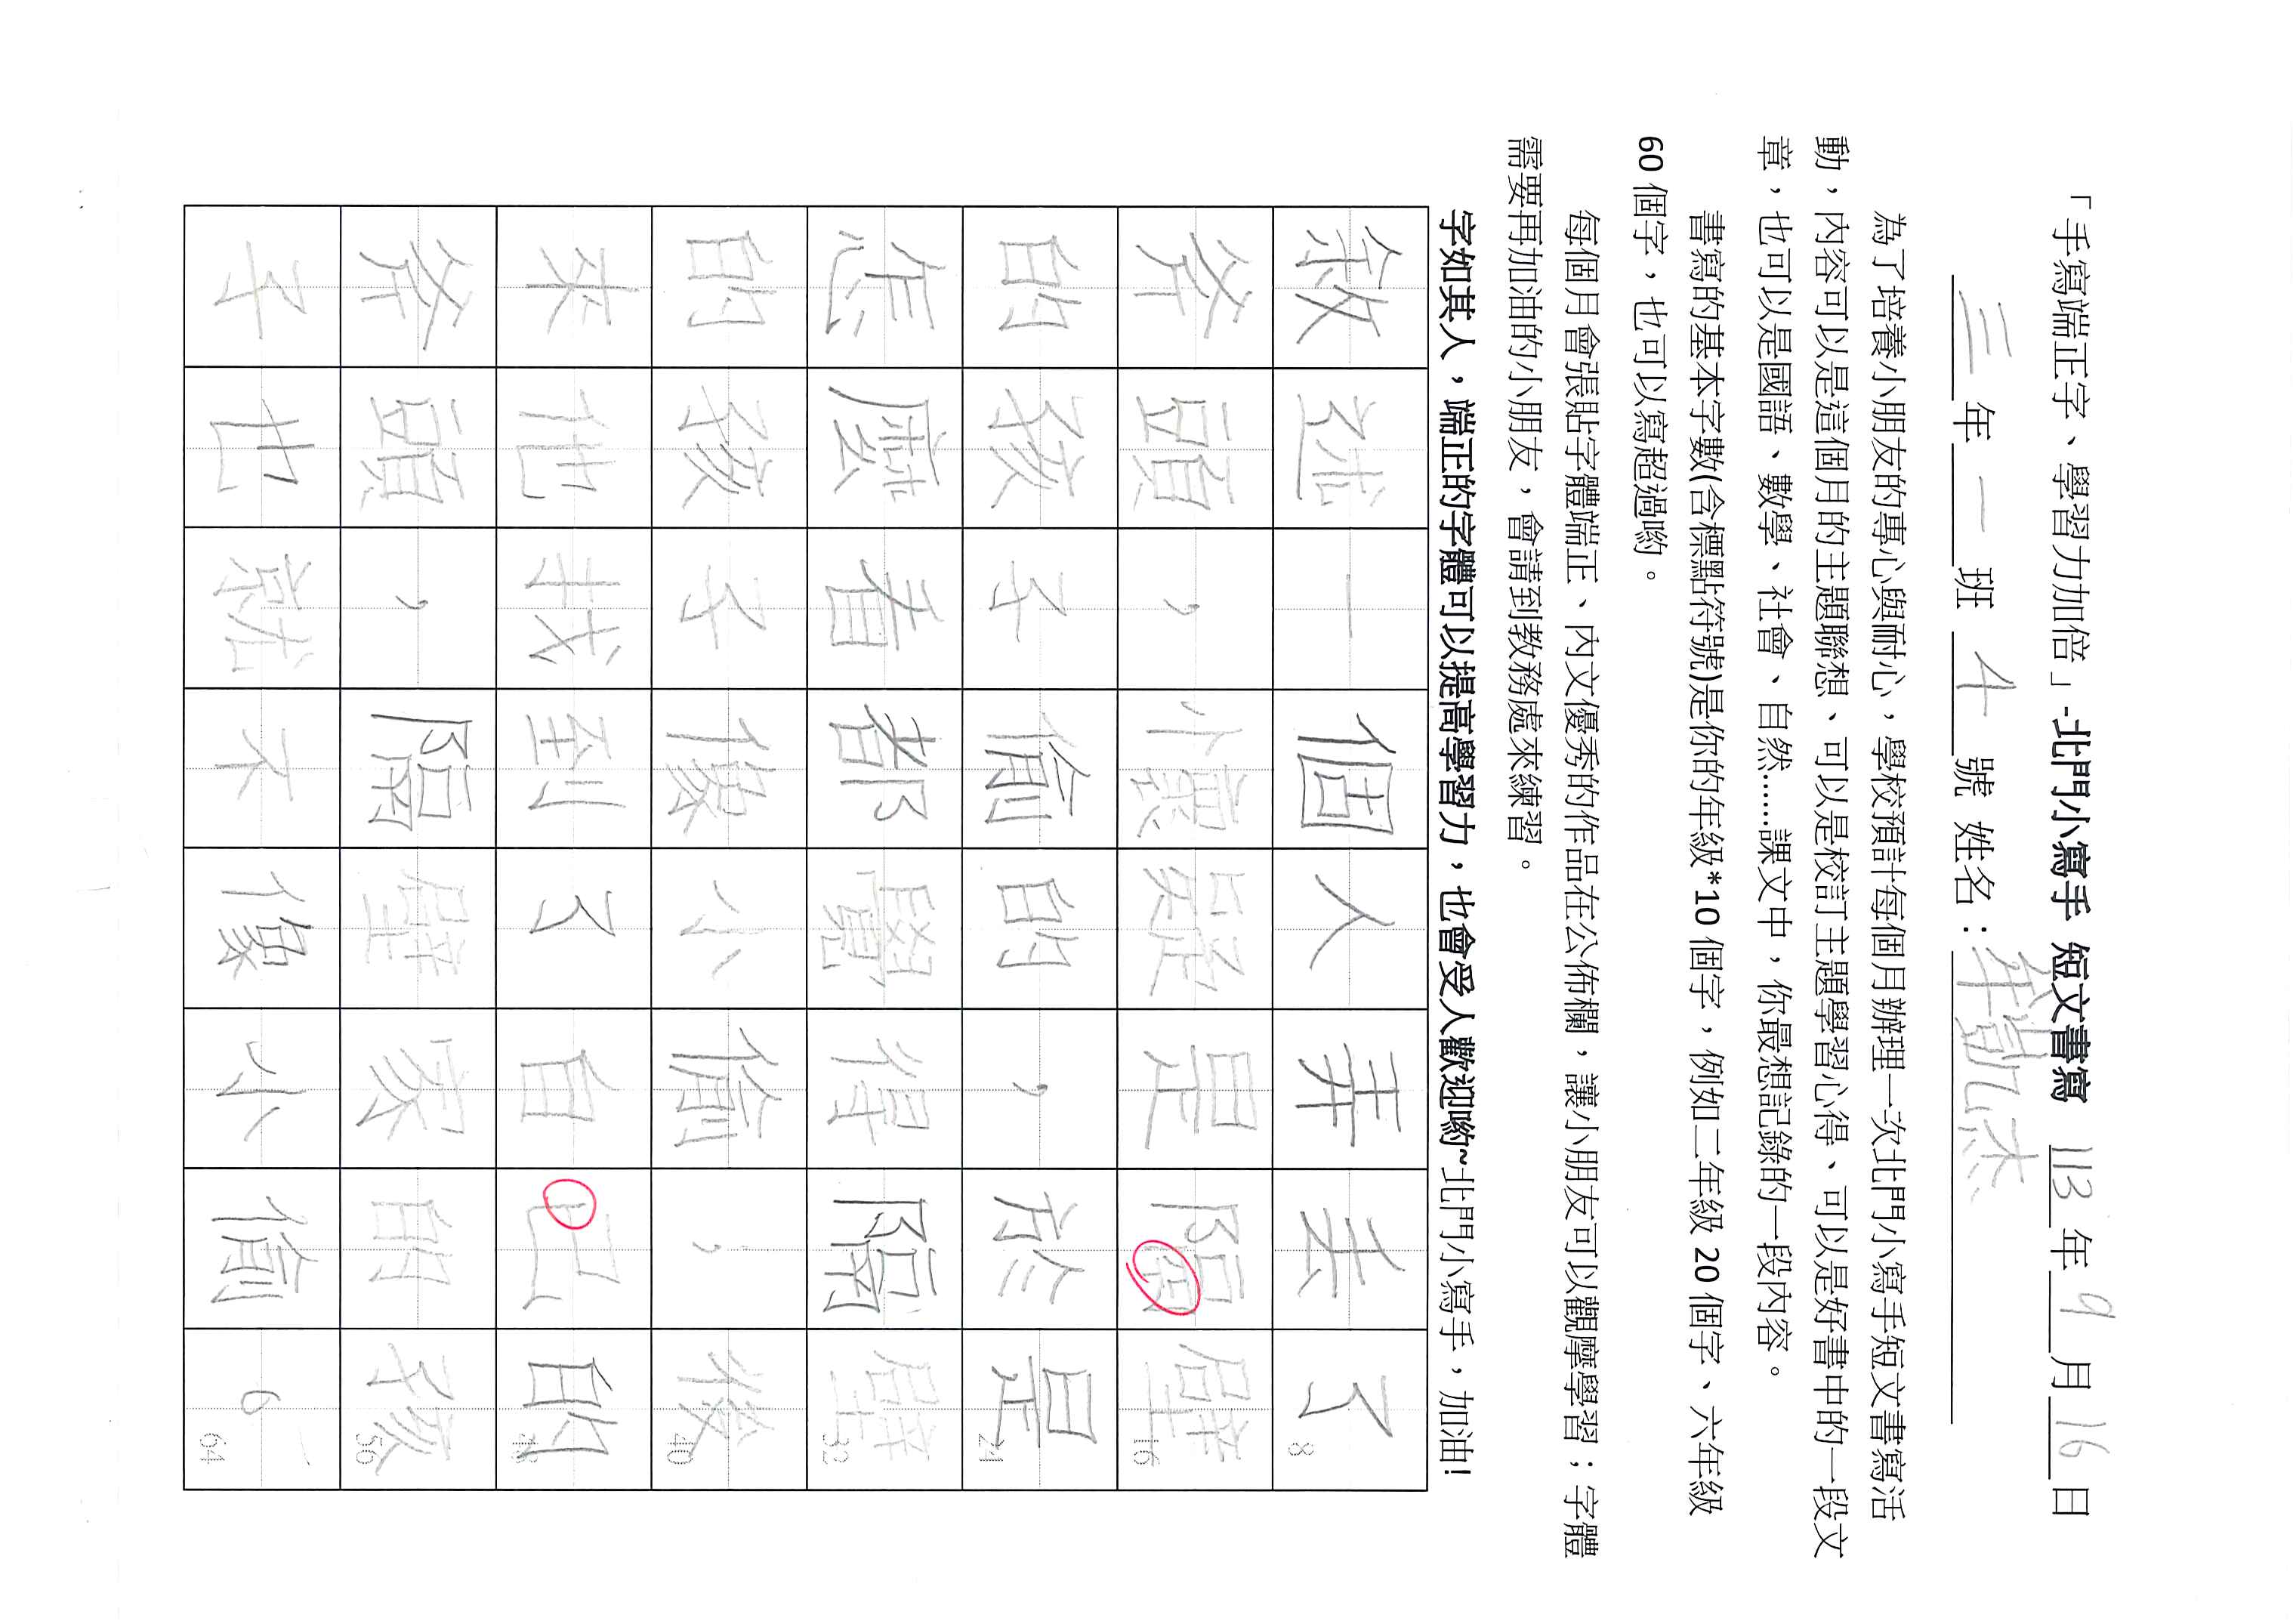 「手寫端正字、學習力加倍」-北門小寫手 短文書寫 113年9月16日
三年一班4號 姓名：李凱杰
為了培養小朋友的專心與耐心，學校預計每個月辦理一次北門小寫手短文書寫活
動，內容可以是這個月的主題聯想、可以是校訂主題學習心得、可以是好書中的一段文
章，也可以是國語、數學、社會、自然......課文中，你最想記錄的一段內容。
書寫的基本字數(含標點符號)是你的年級*10個字，例如二年級20個字、六年級
60個字，也可以寫超過喲。
每個月會張貼字體端正、內文優秀的作品在公佈欄，讓小朋友可以觀摩學習；字體
需要再加油的小朋友，會請到教務處來練習。
字如其人，端正的字體可以提高學習力，也會受人歡迎喲~北門小寫手，加油!
敘述一個人弄丟了 8
斧頭，懷疑是隔壁 16
的孩子偷的，於是 24
怎麼看都覺得隔壁 32
的孩子像小偷，後 40
來他找到了自己的 48
斧頭，隔壁家的孩 56
子也就不像小偷。 64